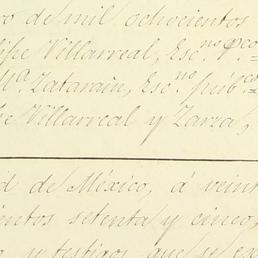 ro de mil ochocientos
lipe Villarreal, Esc.no P.co
M.a Zatarain, Esc.no púb.co
pe Villarreal y Zarza,
d de México, á veint
ientos setenta y cinco,
y testigos que se ex